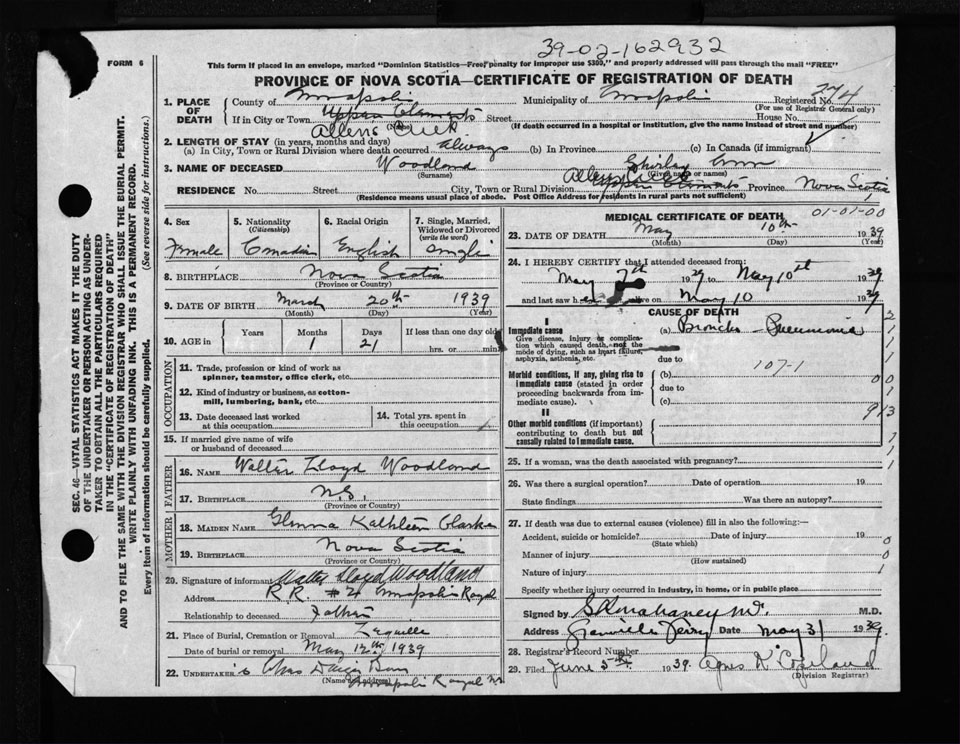 39-02-162932
FORM 6
This form if placed in an envelope, marked "Dominion Statistics—Free, penalty for improper use $300," and properly addressed will pass through the mail "FREE"
PROVINCE OF NOVA SCOTIA—CERTIFICATE OF REGISTRATION OF DEATH
274
1. PLACE OF DEATH County of Annapolis Municipality of Annapolis Registered No.
(For use of Registrar General only)
If in City or Town Upper Clements Street House No.
Allens Creek (If death occurred in a hospital or institution, give the name instead of street and number)
2. LENGTH OF STAY (in years, months and days)
(a) In City, Town or Rural Division where death occurred always (b) In Province (c) In Canada (if immigrant)
3. NAME OF DECEASED Woodland Shirley Ann
(Surname) (Given name or names)
Allens Creek
RESIDENCE No. Street City, Town or Rural Division Upper Clements Province Nova Scotia
(Residence means usual place of abode. Post Office Address for residents in rural parts not sufficient)
4. Sex 5. Nationality (Citizenship) 6. Racial Origin 7. Single, Married, Widowed or Divorced (write the word)
Female Canadian English Single
8. BIRTHPLACE Nova Scotia
(Province or Country)
9. DATE OF BIRTH March 20th 1939
(Month) (Day) (Year)
10. AGE in Years Months Days If less than one day old
1 21 hrs. or min.
OCCUPATION
11. Trade, profession or kind of work as spinner, teamster, office clerk, etc.
12. Kind of industry or business, as cotton-mill, lumbering, bank, etc.
13. Date deceased last worked at this occupation 14. Total yrs. spent in this occupation
15. If married give name of wife or husband of deceased
FATHER
16. NAME Walter Lloyd Woodland
17. BIRTHPLACE N.S.
(Province or Country)
MOTHER
18. MAIDEN NAME Glenna Kathleen Clarke
19. BIRTHPLACE Nova Scotia
(Province or Country)
20. Signature of informant Walter Lloyd Woodland
Address R.R. #2 Annapolis Royal
Relationship to deceased Father
21. Place of Burial, Cremation or Removal Lequille
Date of burial or removal May 12th 1939
22. UNDERTAKER'S
(Name and Address) Annapolis Royal N.S.
MEDICAL CERTIFICATE OF DEATH 01-01-00
23. DATE OF DEATH May 10th 1939
(Month) (Day) (Year)
24. I HEREBY CERTIFY that I attended deceased from:
May 7th 1939 to May 10th 1939
and last saw her alive on May 10 1939
CAUSE OF DEATH
I
Immediate cause (a) Broncho-Pneumonia
Give disease, injury or complication which caused death, not the mode of dying, such as heart failure, asphyxia, asthenia, etc.
due to
107-1
Morbid conditions, if any, giving rise to immediate cause (stated in order proceeding backwards from immediate cause).
(b)
due to
(c)
II
Other morbid conditions (if important) contributing to death but not causally related to immediate cause.
25. If a woman, was the death associated with pregnancy?
26. Was there a surgical operation? Date of operation 19
State findings Was there an autopsy?
27. If death was due to external causes (violence) fill in also the following:—
Accident, suicide or homicide? Date of injury 19
(State which)
Manner of injury
(How sustained)
Nature of injury
Specify whether injury occurred in industry, in home, or in public place
Signed by M.D.
Address Granville Ferry Date May 31 1939
28. Registrar's Record Number
29. Filed June 5th 1939 Agnes K. Copeland
(Division Registrar)
SEC. 46—VITAL STATISTICS ACT MAKES IT THE DUTY
OF THE UNDERTAKER OR PERSON ACTING AS UNDER-
TAKER TO OBTAIN ALL THE PARTICULARS REQUIRED
IN THE "CERTIFICATE OF REGISTRATION OF DEATH"
AND TO FILE THE SAME WITH THE DIVISION REGISTRAR WHO SHALL ISSUE THE BURIAL PERMIT.
WRITE PLAINLY WITH UNFADING INK. THIS IS A PERMANENT RECORD.
Every item of information should be carefully supplied. (See reverse side for instructions.)